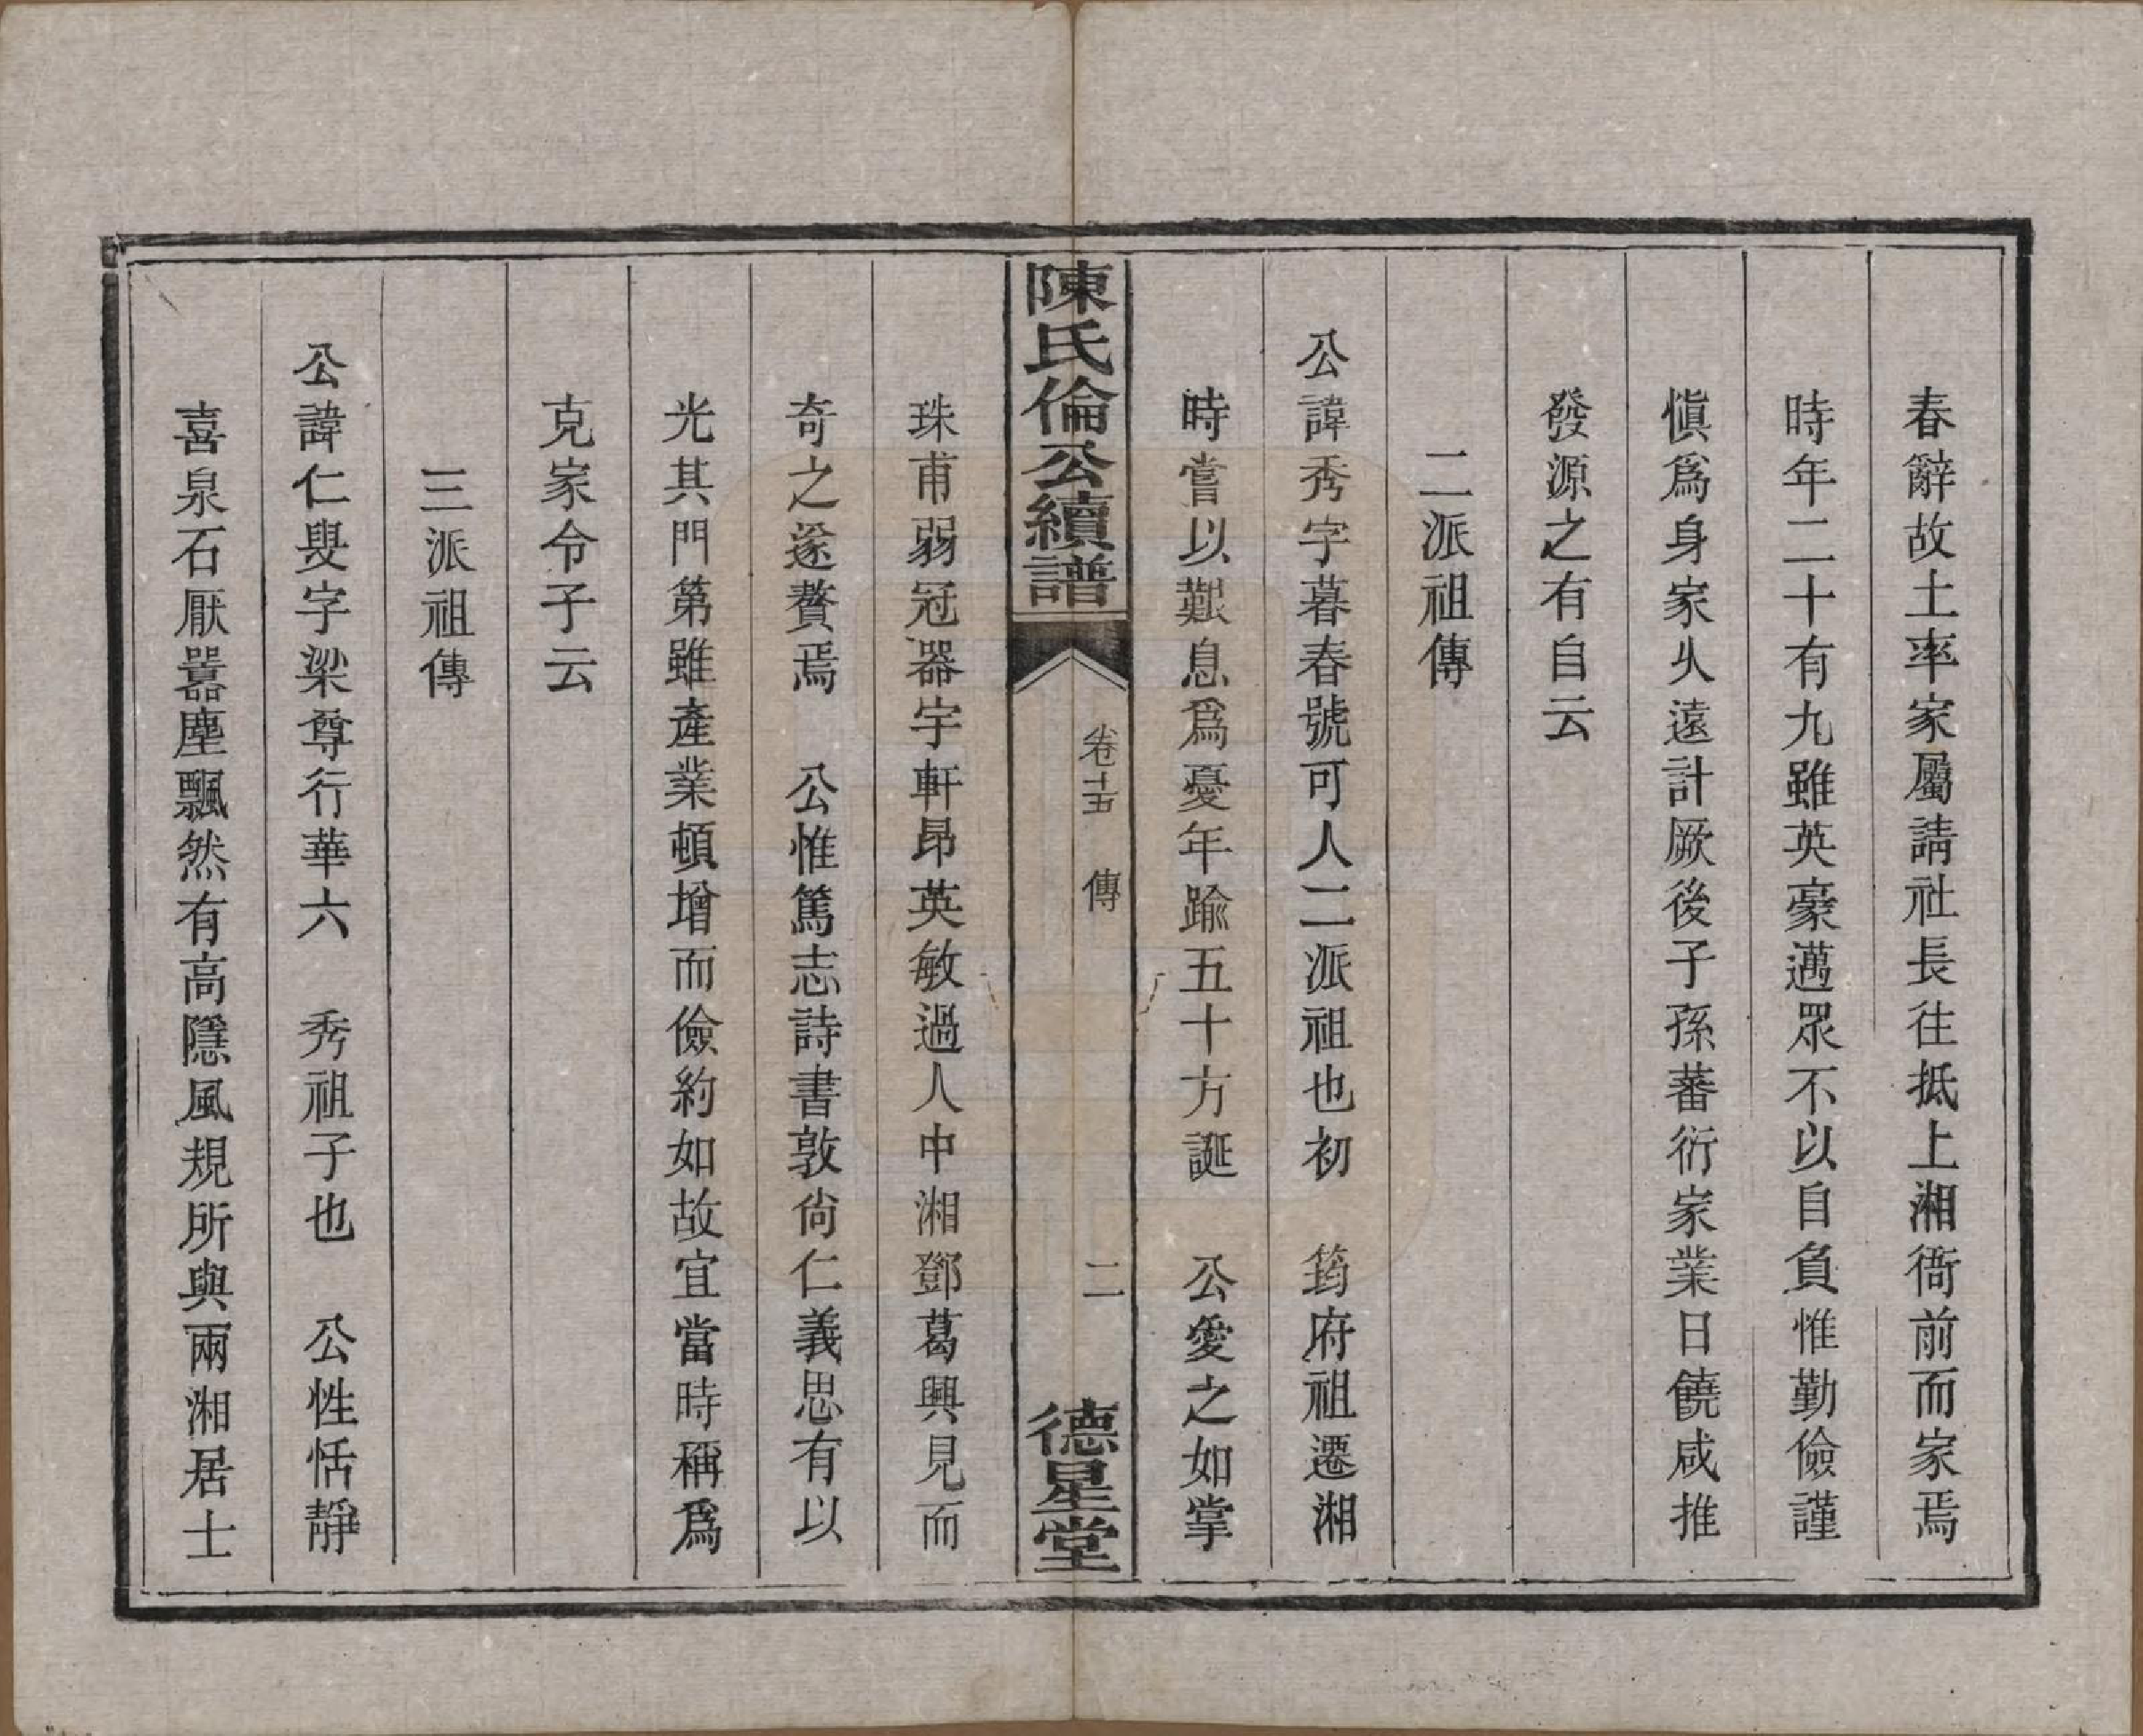 春辭故土率家屬請社長往抵上湘衙前而家焉
時年二十有九雖英豪邁眾不以自負惟勤儉謹
愼爲身家久遠計厥後子孫蕃衍家業日饒咸推
發源之有自云
二派祖傳
公諱秀字暮春號可人二派祖也初　筠府祖遷湘
時嘗以艱息爲憂年踰五十方誕　公愛之如掌
陳氏倫公續譜　卷十五　傳　二　德星堂
珠甫弱冠器宇軒昂英敏過人中湘鄧葛興見而
奇之遂贅焉　公惟篤志詩書敦尙仁義思有以
光其門第雖產業頓增而儉約如故宜當時稱爲
克家令子云
三派祖傳
公諱仁叟字梁尊行華六　秀祖子也　公性恬靜
喜泉石厭囂塵飄然有高隱風規所與兩湘居士